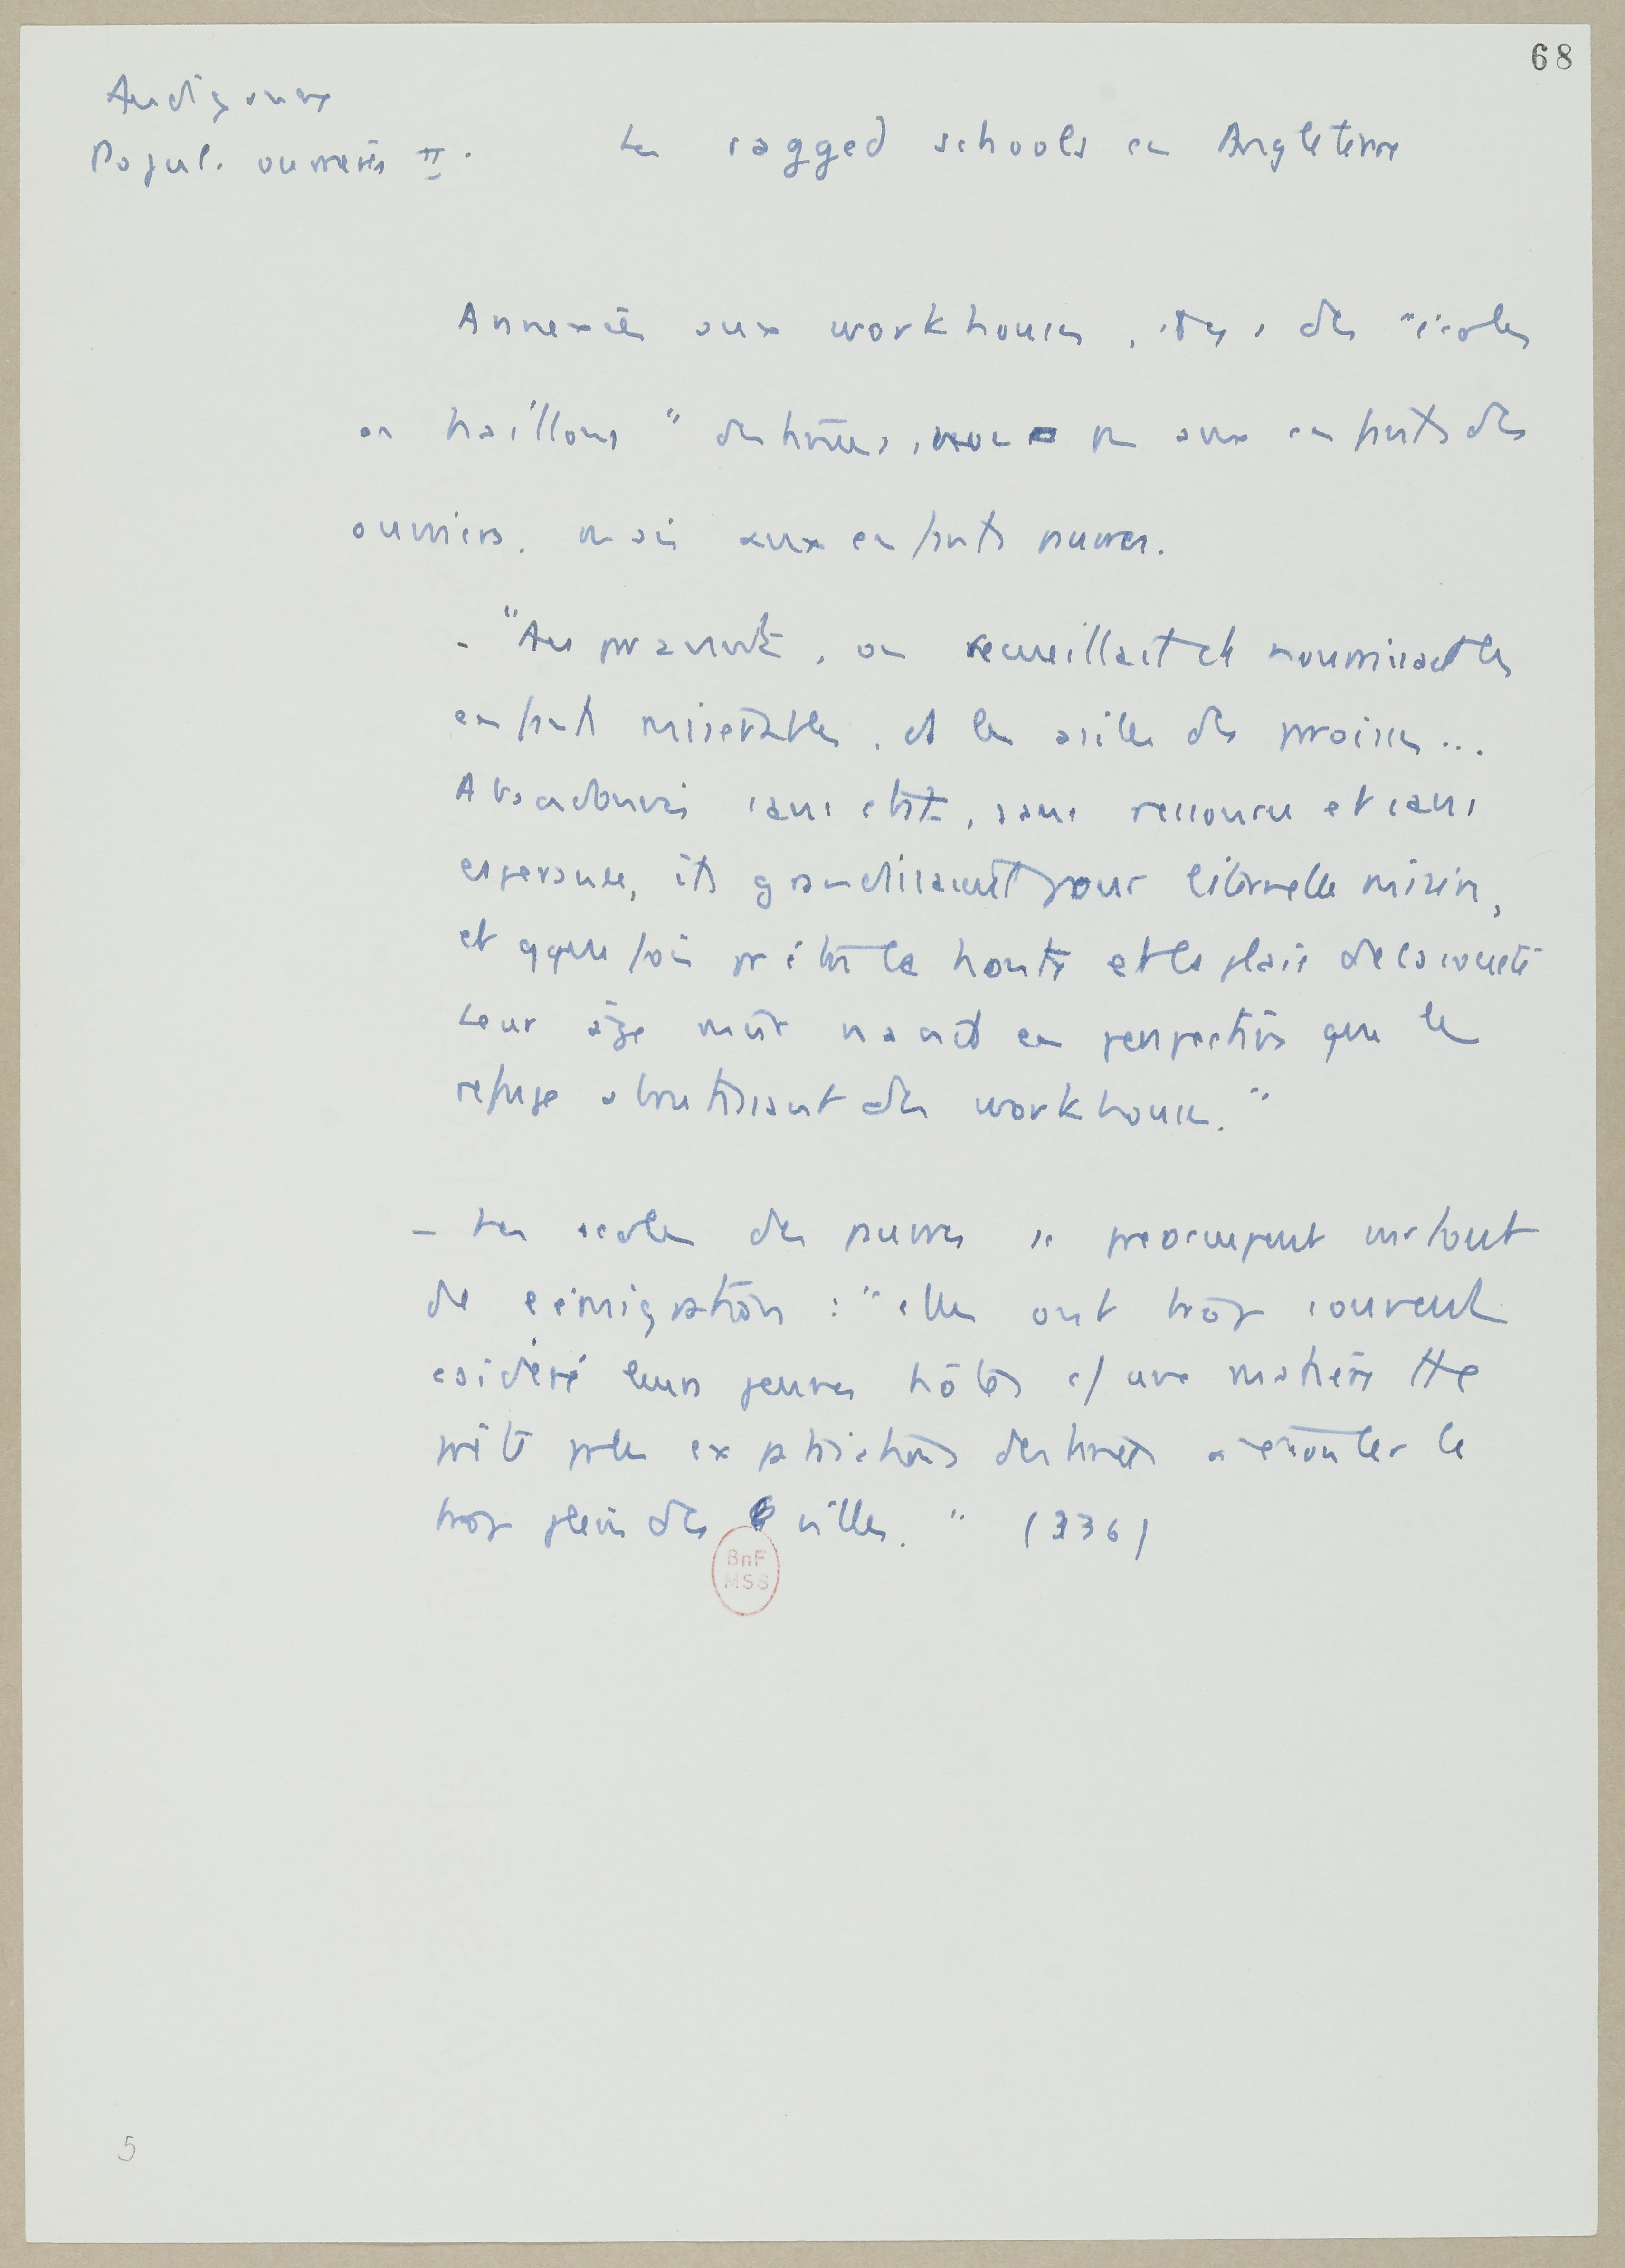 68
Audiganne
Popul. ouvrières II.
Les ragged schools en Angleterre
Annexées aux workhouses, des "écoles
en haillons" destinées, non pas aux enfants des
ouvriers, mais aux enfants pauvres.
- "Auparavant, on recueillait et nourrissait les
enfants misérables, et les asiles des paroisses...
Abandonnés sans état, sans ressource et sans
espérance, ils grandissaient pour l'éternelle misère,
et qque fois pr être la honte et la plaie de la société
Leur âge mûr n'avait en perspective que le
refuge abrutissant des workhouses."
- Les écoles des pauvres se préoccupent surtout
de l'émigration : "elles ont trop souvent
csidéré leurs jeunes hôtes c/ une matière tte
prête pr les expatriations destinées à écouler le
trop plein des villes." (336)
BnF
MSS
5